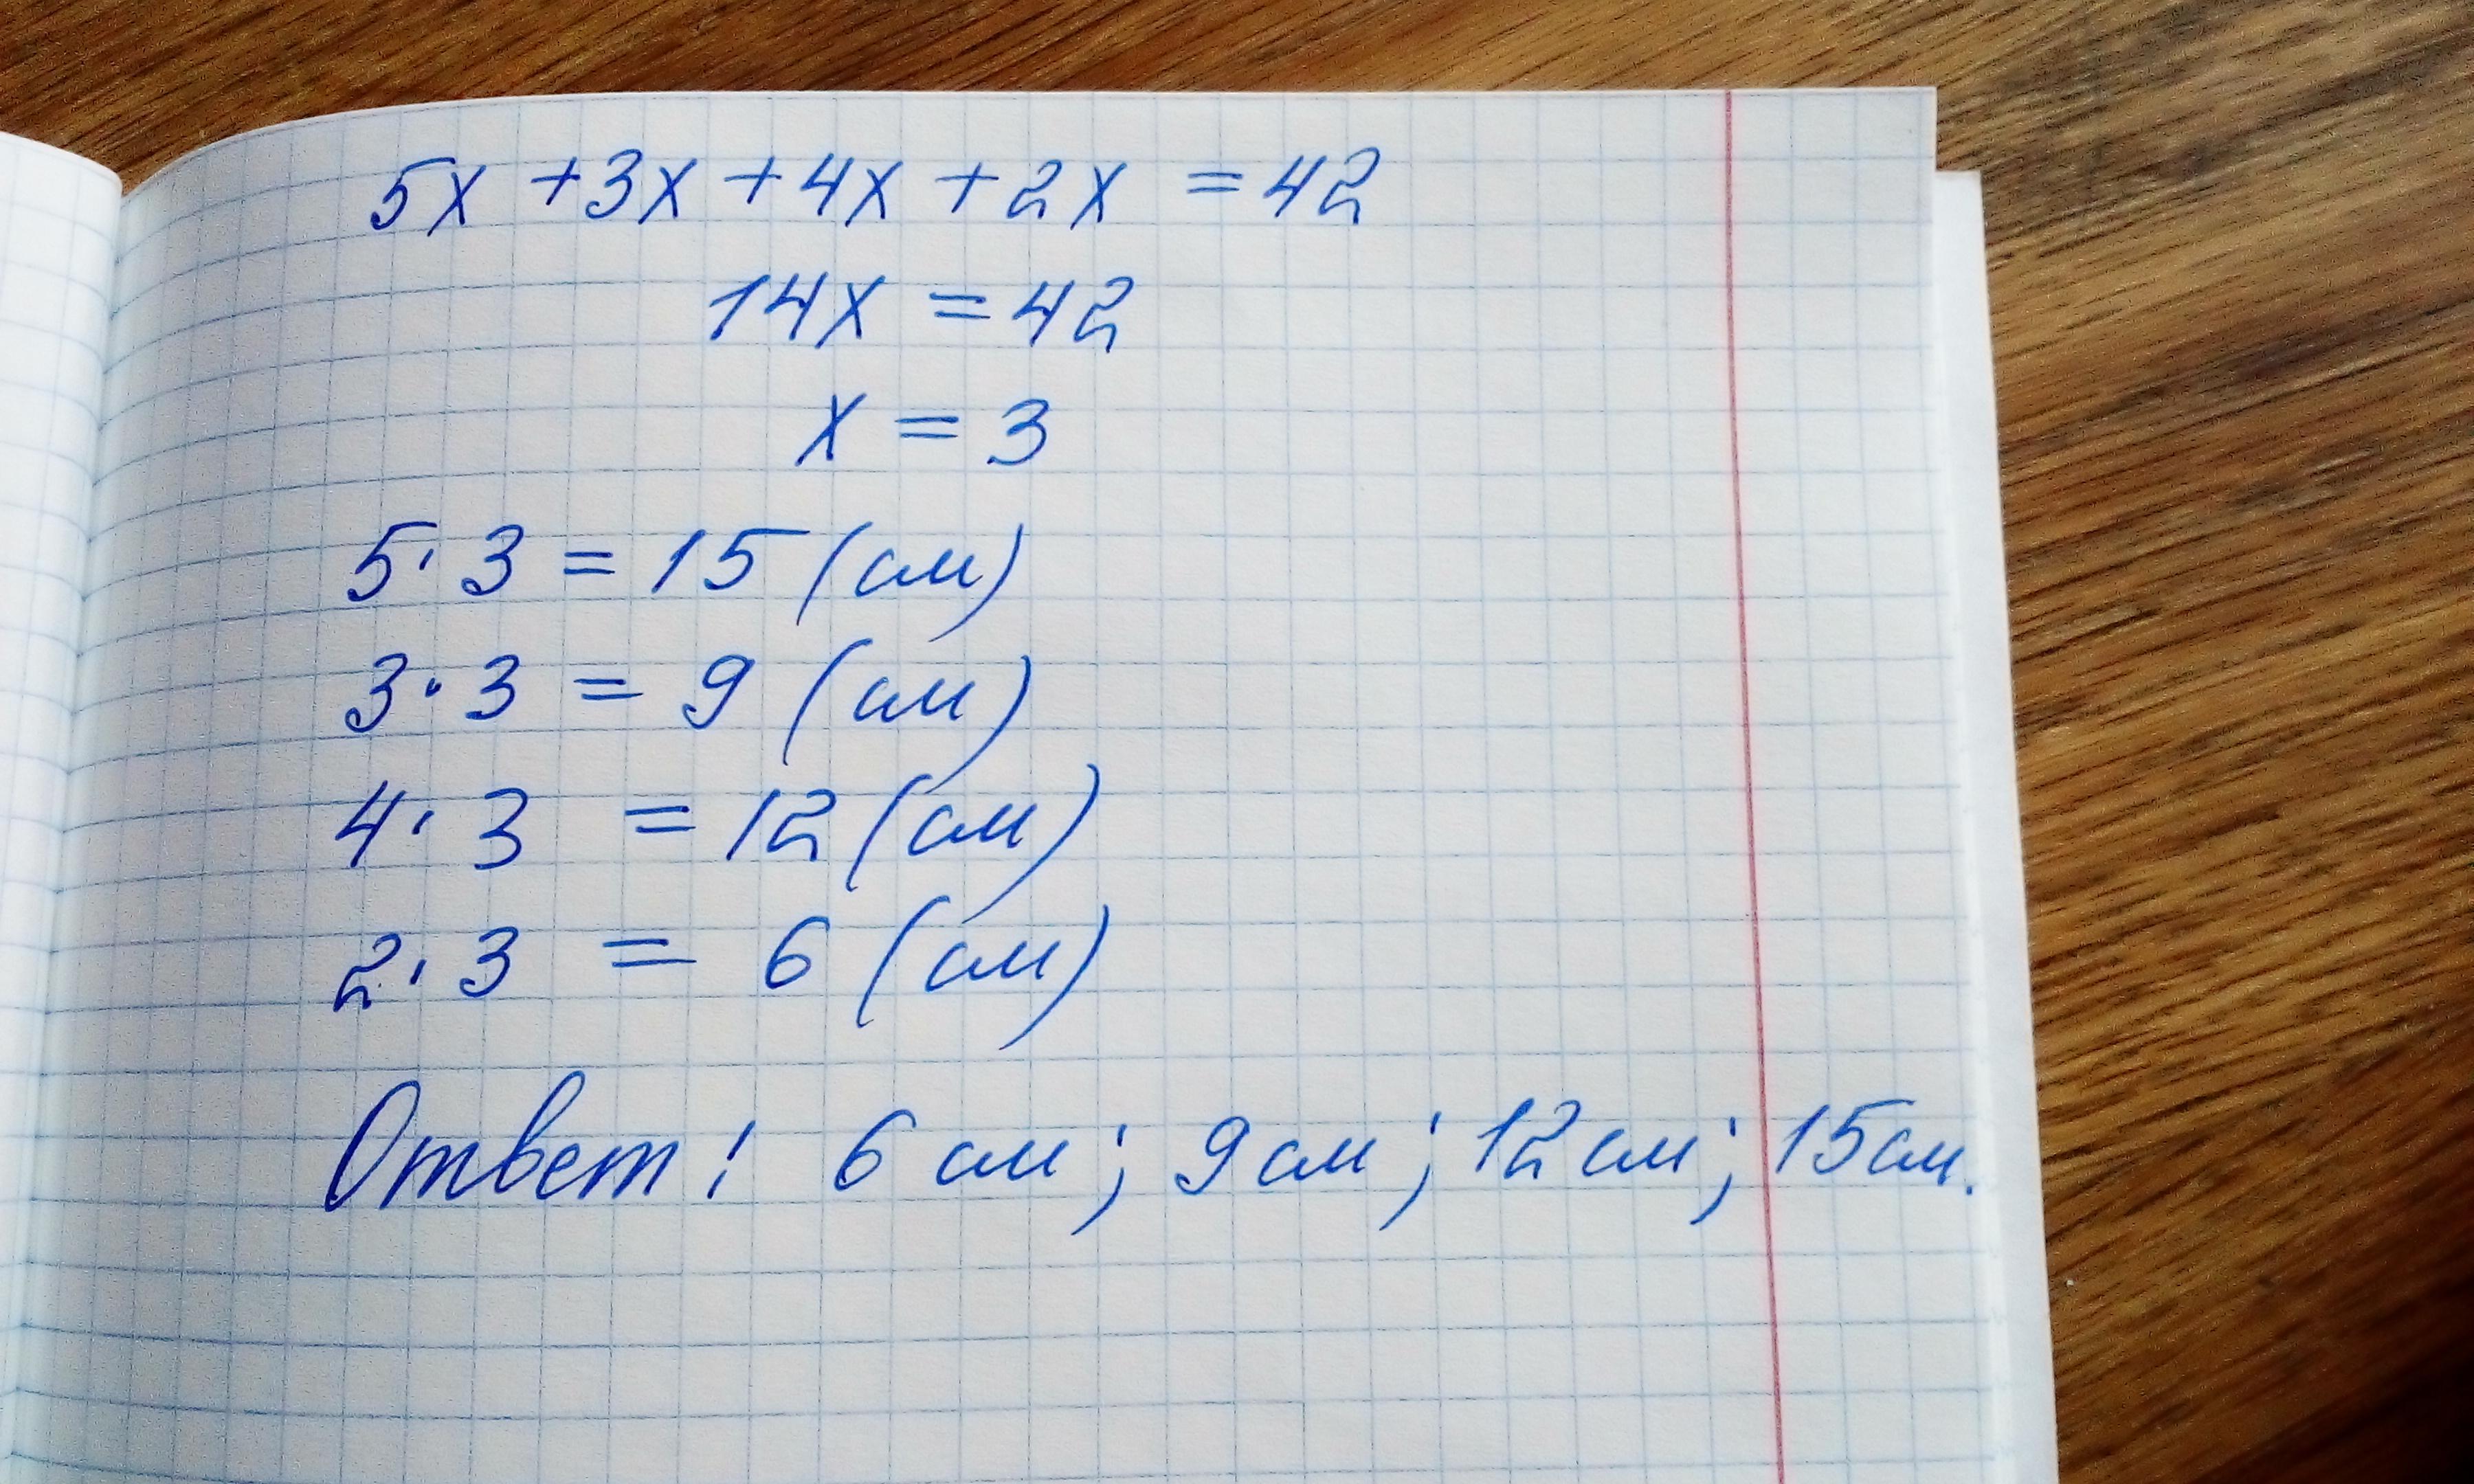 5x + 3x + 4x + 2x = 42
14x = 42
x = 3
5 · 3 = 15 (см)
3 · 3 = 9 (см)
4 · 3 = 12 (см)
2 · 3 = 6 (см)
Ответ: 6 см; 9 см; 12 см; 15 см.